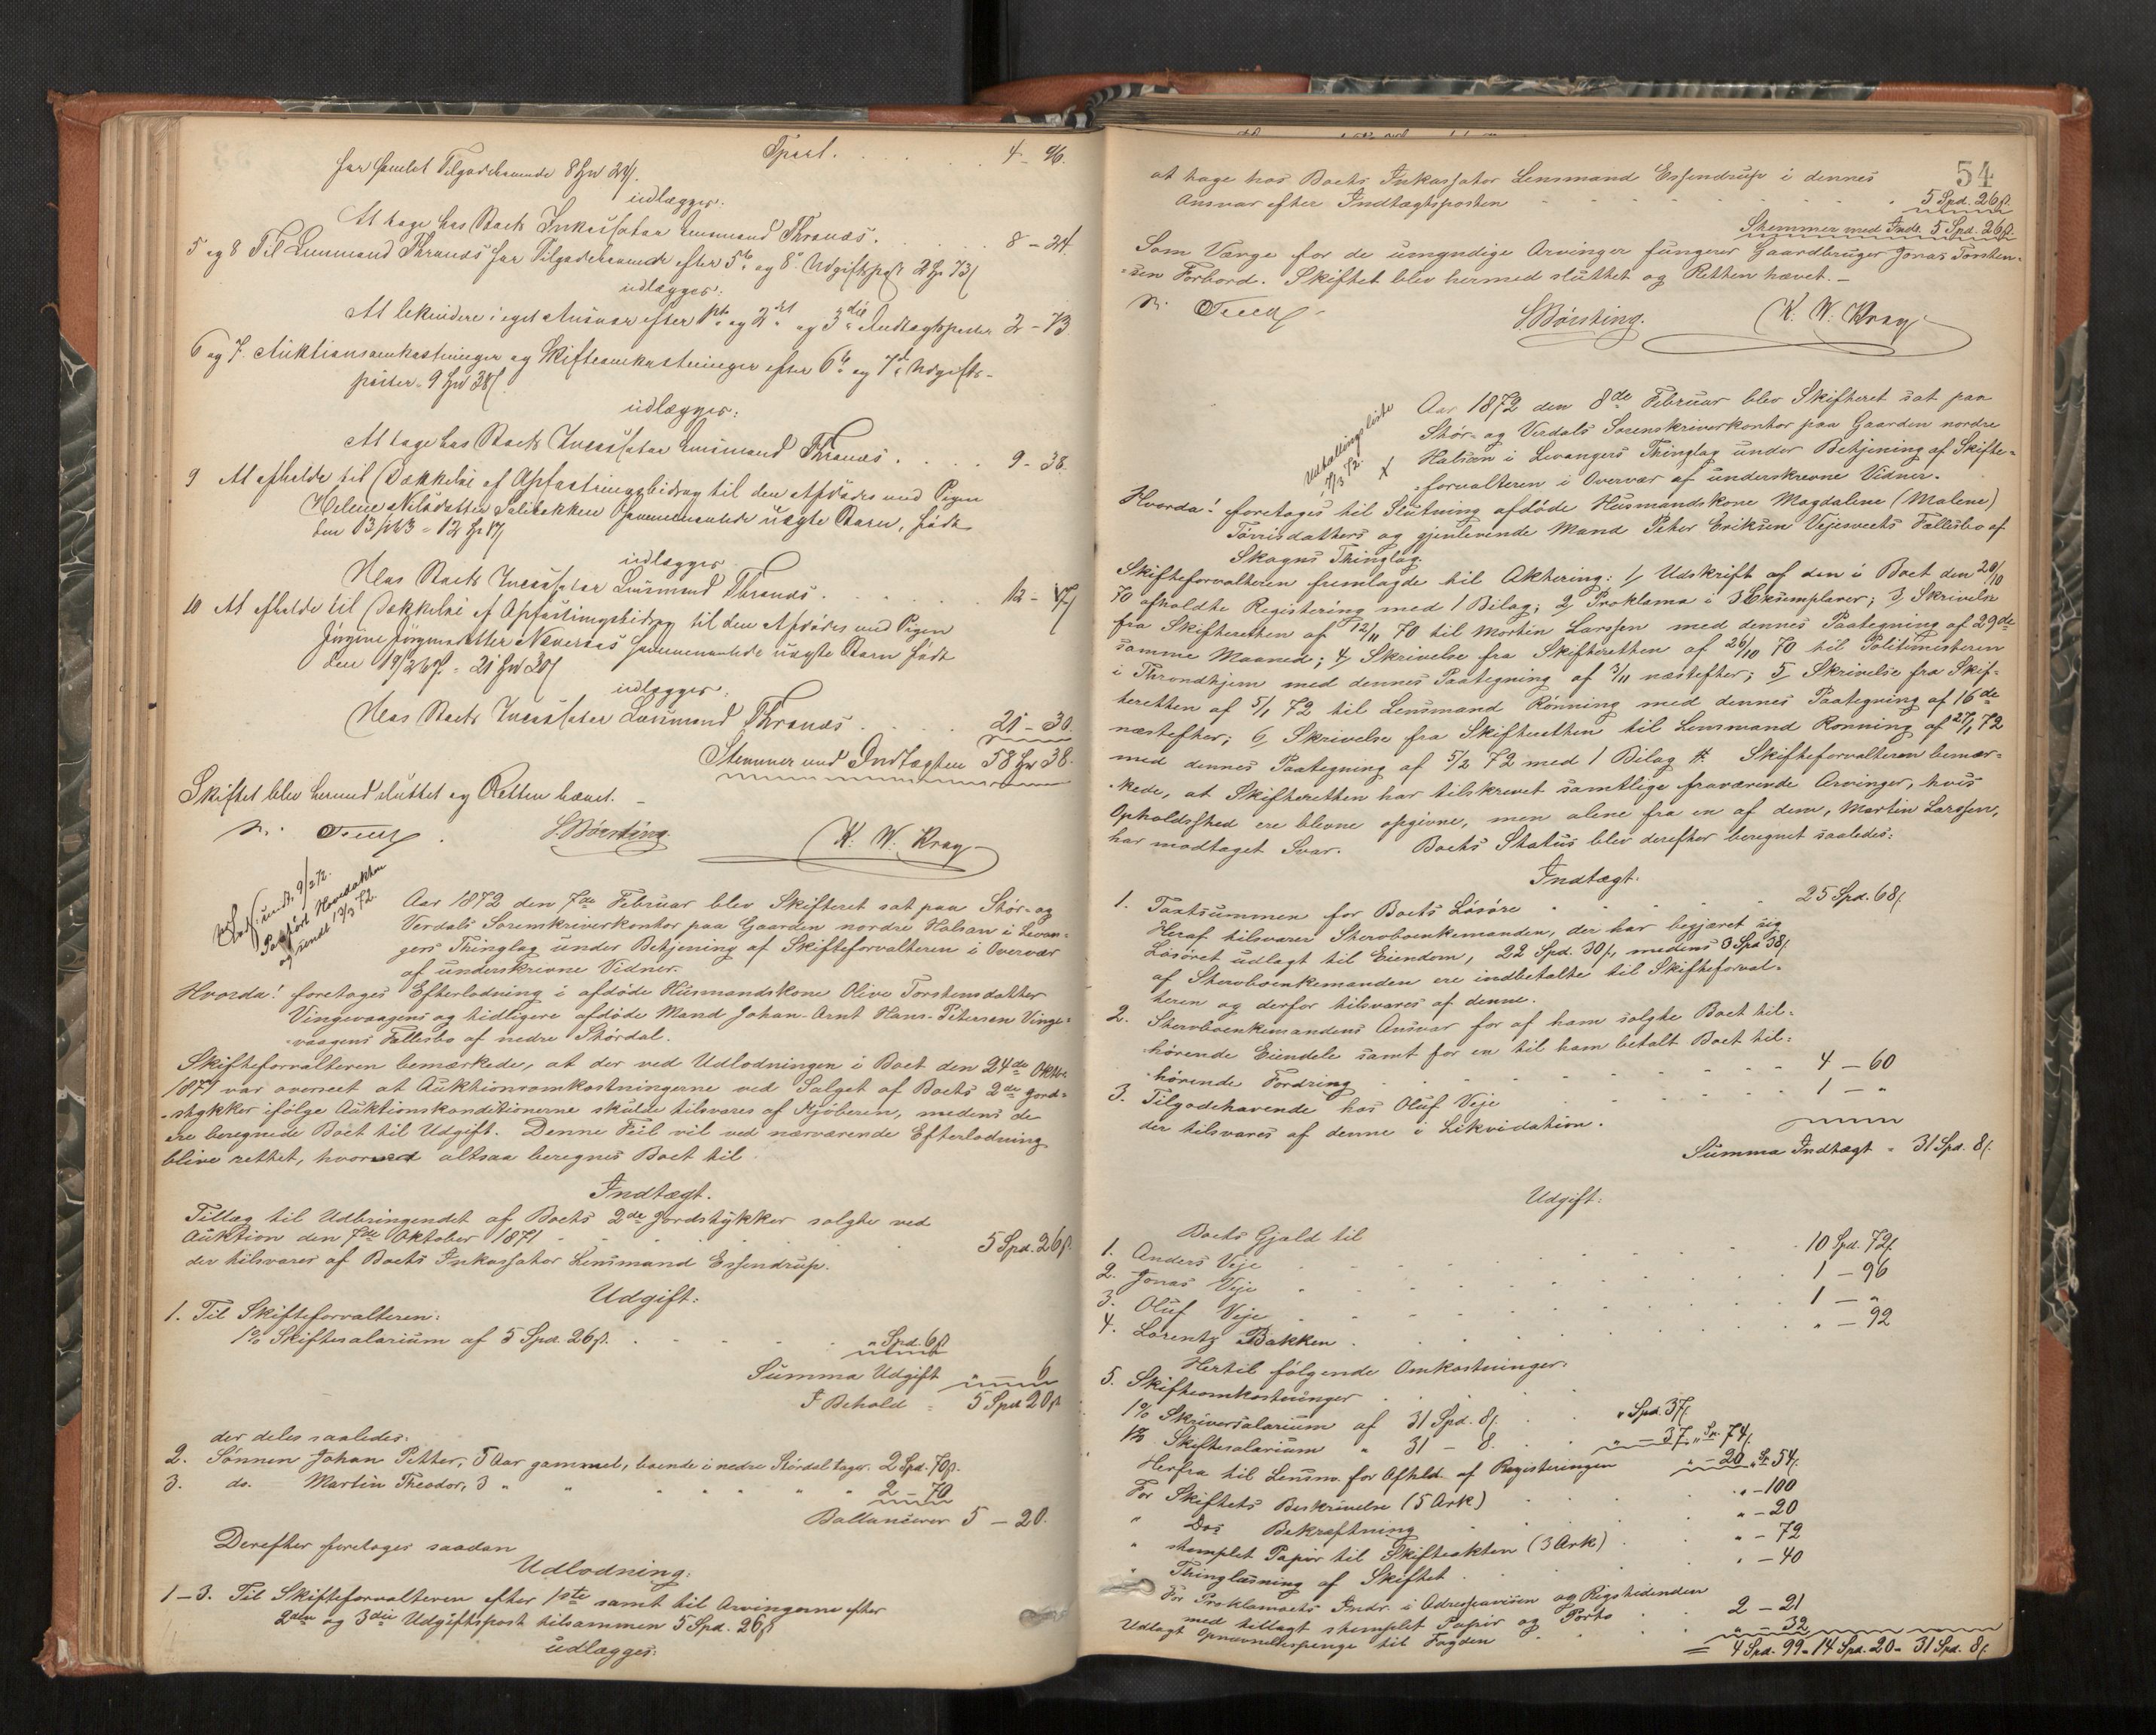 Transp. 4 - 46.
for samlet Tilgodehavende 8 Spd 24 ß.
udlægges:
At tage hos Boets Inkassator Lensmand Thranæs. 8 - 24.
5 og 8 Til Lensmand Thranæs for Tilgodehavende efter 5te og 8de Udgiftspost 2 Sp 73 ß
udlægges:
At likvidere i eget Ansvar efter 1ste og 2den og 3die Indtægtsposter 2 - 73
6 og 7. Auktionsomkostninger og Skifteomkostninger efter 6te og 7de Udgifts-
poster - 9 Spd 38 ß.
udlægges:
At tage hos Boets Incassator Lensmand Thranæs. 9 - 38.
9 At afholde til Dækkelse af Opfostringsbidrag til den Afdødes med Pigen
Helene Nilsdatter sammenavlede uægte Barn, født
den 13/ 63 - 12 Sp 17 ß
udlægges
Hos Boets Incassator Lensmand Thranæs. 12 - 17
10 At afholde til Dækkelse af Opfostringsbidrag til den Afdødes med Pigen
Jørgine Jørgensdatter sammenavlede uægte Barn født
den 19/2 69. - 21 Spd 30 ß
udlægges.
Hos Boets Incassator Lensmand Thranæs 21 - 30.
Stemmer med Indtægten 58 Spd 38.
Skiftet blev hermed sluttet og Retten hævet. -
S. Børsting. K. W. Kray
9/2 72.
Paaført Hovedakten
og sendt 13/3 72.
Aar 1872 den 7de Februar blev Skifteret sat paa Stør- og
Verdals Sorenskriverkontor paa Gaarden nordre Halsan i Levan-
gers Thinglag under Betjening af Skifteforvalteren i Overvær
af underskrivne Vidner.
Hvorda! foretoges Efterlodning i afdøde Husmandskone Olive Torstensdatter
Vingevaagens og tidligere afdøde Mand Johan-Arnt Hans-Petersen Vinge-
vaagens Fællesbo af nedre Stórdal.
Skifteforvalteren bemærkede, at der ved Udlodningen i Boet den 24de Oktbr.
1871 var overseet at Auktionsomkostningerne ved Salget af Boets 2de Jord-
stykker ifølge Auktionskonditionerne skulde tilsvares af Kjøberen, medens de
ere beregnede Boet til Udgift. Denne Feil vil ved nærværende Efterlodning
blive rettet, hvorved altsaa beregnes Boet til
Indtægt.
Tillæg til Udbringendet af Boets 2de Jordstykker solgte ved
Auktion den 7de Oktober 1871 5 Spd. 26 ß.
der tilsvares af Boets Inkassator Lensmand Essendrup.
Udgift:
1. Til Skifteforvalteren:
1% Skiftesalarium af 5 Spd. 26 ß. " Spd. 6 ß
Summa Udgift " 6
I Behold = 5 Spd. 20 ß.
der deles saaledes:
2. Sønnen Johan Petter, 5 Aar gammel, boende i nedre Stórdal tager. 2 Spd. 70 ß.
3. do. Martin Theodor, 3 " " " " " " 2 - 70
Ballancerer 5 - 20.
Derefter foretoges saadan
Udlodning:
1-3. Til Skifteforvalteren efter 1ste samt til Arvingerne efter
2den og 3die Udgiftspost tilsammen 5 Spd. 26 ß
udlægges:
54
at tage hos Boets Inkassator Lensmand Essendrup i dennes
Ansvar efter Indtægtsposten 5 Spd. 26 ß.
Stemmer med Indt. 5 Spd. 26 ß.
Som Værge for de umyndige Arvinger fungerer Gaardbruger Jonas Torsten-
sen Forbord. Skiftet blev hermed sluttet og Retten hævet. -
S. Børsting. K. W. Kray
Udtallingsliste
7/3 72. X
Aar 1872 den 8de Februar blev Skifteret sat paa
Stør- og Verdals Sorenskriverkontor paa Gaarden nordre
Halsan i Levangers Thinglag under Betjening af Skifte-
forvalteren i Overvær af underskrevne Vidner.
Hvorda! foretoges til Slutning afdøde Husmandskone Magdalene (Malene)
Tørrisdatters og gjenlevende Mand Peter Eriksen Vejesveets Fællesbo af
Skogns Thinglag
Skifteforvalteren fremlagde til Aktering: 1, Udskrift af den i Boet den 20/10
70 afholdte Registering med 1 Bilag; 2, Proklama i 3 Exemplarer; 3, Skrivelse
fra Skifteretten af 12/11 70 til Mortin Larssen med dennes Paategning af 29de
samme Maaned; 4, Skrivelse fra Skifteretten af 26/10 70 til Politimisteren
i Throndhjem med dennes Paategning af 3/11 næstefter; 5, Skrivelse fra Skif-
teretten af 5/1 72 til Lensmand Rønning med dennes Paategning af 16de
næstefter; 6, Skrivelse fra Skifteretten til Lensmand Rønning af 27/1 72
med dennes Paategning af 5/2 72 med 1 Bilag #. Skifteforvalteren bemær-
kede, at Skifteretten har tilskrevet samtlige fraværende Arvinger, hvis
Opholdssted ere blevne opgivne, men alene fra en af dem, Martin Larssen,
har modtaget Svar. Boets Status blev derefter beregnet saaledes:
Indtægt.
1. Taxtsummen for Boets Løsøre 25 Spd. 68 ß.
Heraf tilsvarer Stervboenkemanden, der har begjæret sig
Løsøret udlagt til Eiendom, 22 Spd. 30 ß, medens 3 Spd 38 ß.
af Stervboenkemanden ere indbetalte til Skifteforval-
teren og derfor tilsvares af denne.
2. Stervboenkemandens Ansvar for af ham solgte Boet til-
hørende Eiendele samt for en til ham betalt Boet til-
hørende Fordring 4 - 60
3. Tilgodehavende hos Oluf Veje 1 - "
der tilsvares af denne i Likvidation.
Summa Indtægt = 31 Spd. 8 ß.
Udgift:
Boets Gjæld til
1. Anders Veje 10 Spd. 72 ß.
2. Jonas Veje 1 - 96
3. Oluf Veje 1 - "
4. Lorentz Bakken " - 92
Hertil følgende Omkostninger:
5. Skifteomkostninger
1% Skriversalarium af 31 Spd. 8 ß. " Spd. 37 ß.
1% Skiftesalarium " 31 - 8. " - 37. " Sp. 74 ß.
Herfra til Lensm. for Afhld. af Registeringen " - 20 " Sp. 54 ß.
For Skiftets Beskrivelse (5 Ark) " - 100
" Dos Bekræftning " - 20
" stemplet Papir til Skifteakten (3 Ark) " - 72
" Thinglæsning af Skiftet " - 40
For Proklamaets Indr. i Adresseavisen og Rigstidenden
med tillagt stemplet Papir og Porto 2 - 21
Udlagt Opnævnelsespenge til Fogden " - 32
= 4 Spd. 99 - 14 Spd. 20 - 31 Spd. 8 ß.